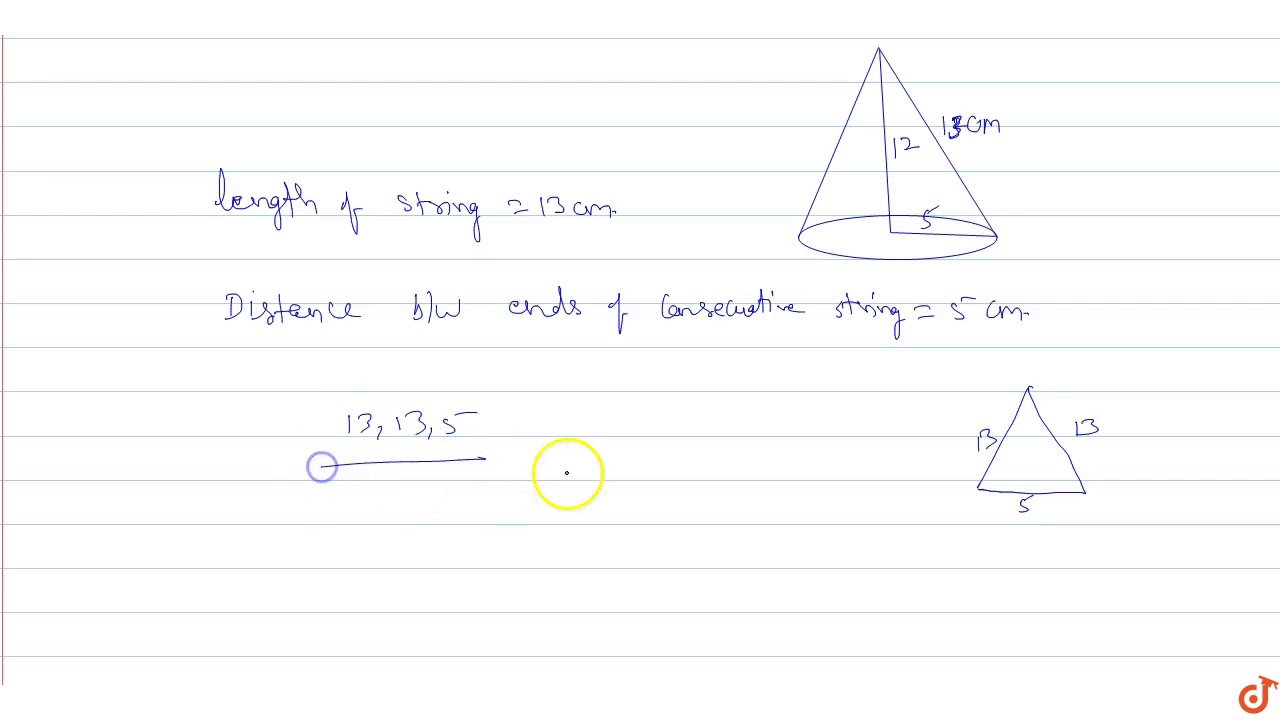 13cm
12
5
length of string = 13cm
Distance b/w ends of Consecutive string = 5 cm
13, 13, 5
13 13
5